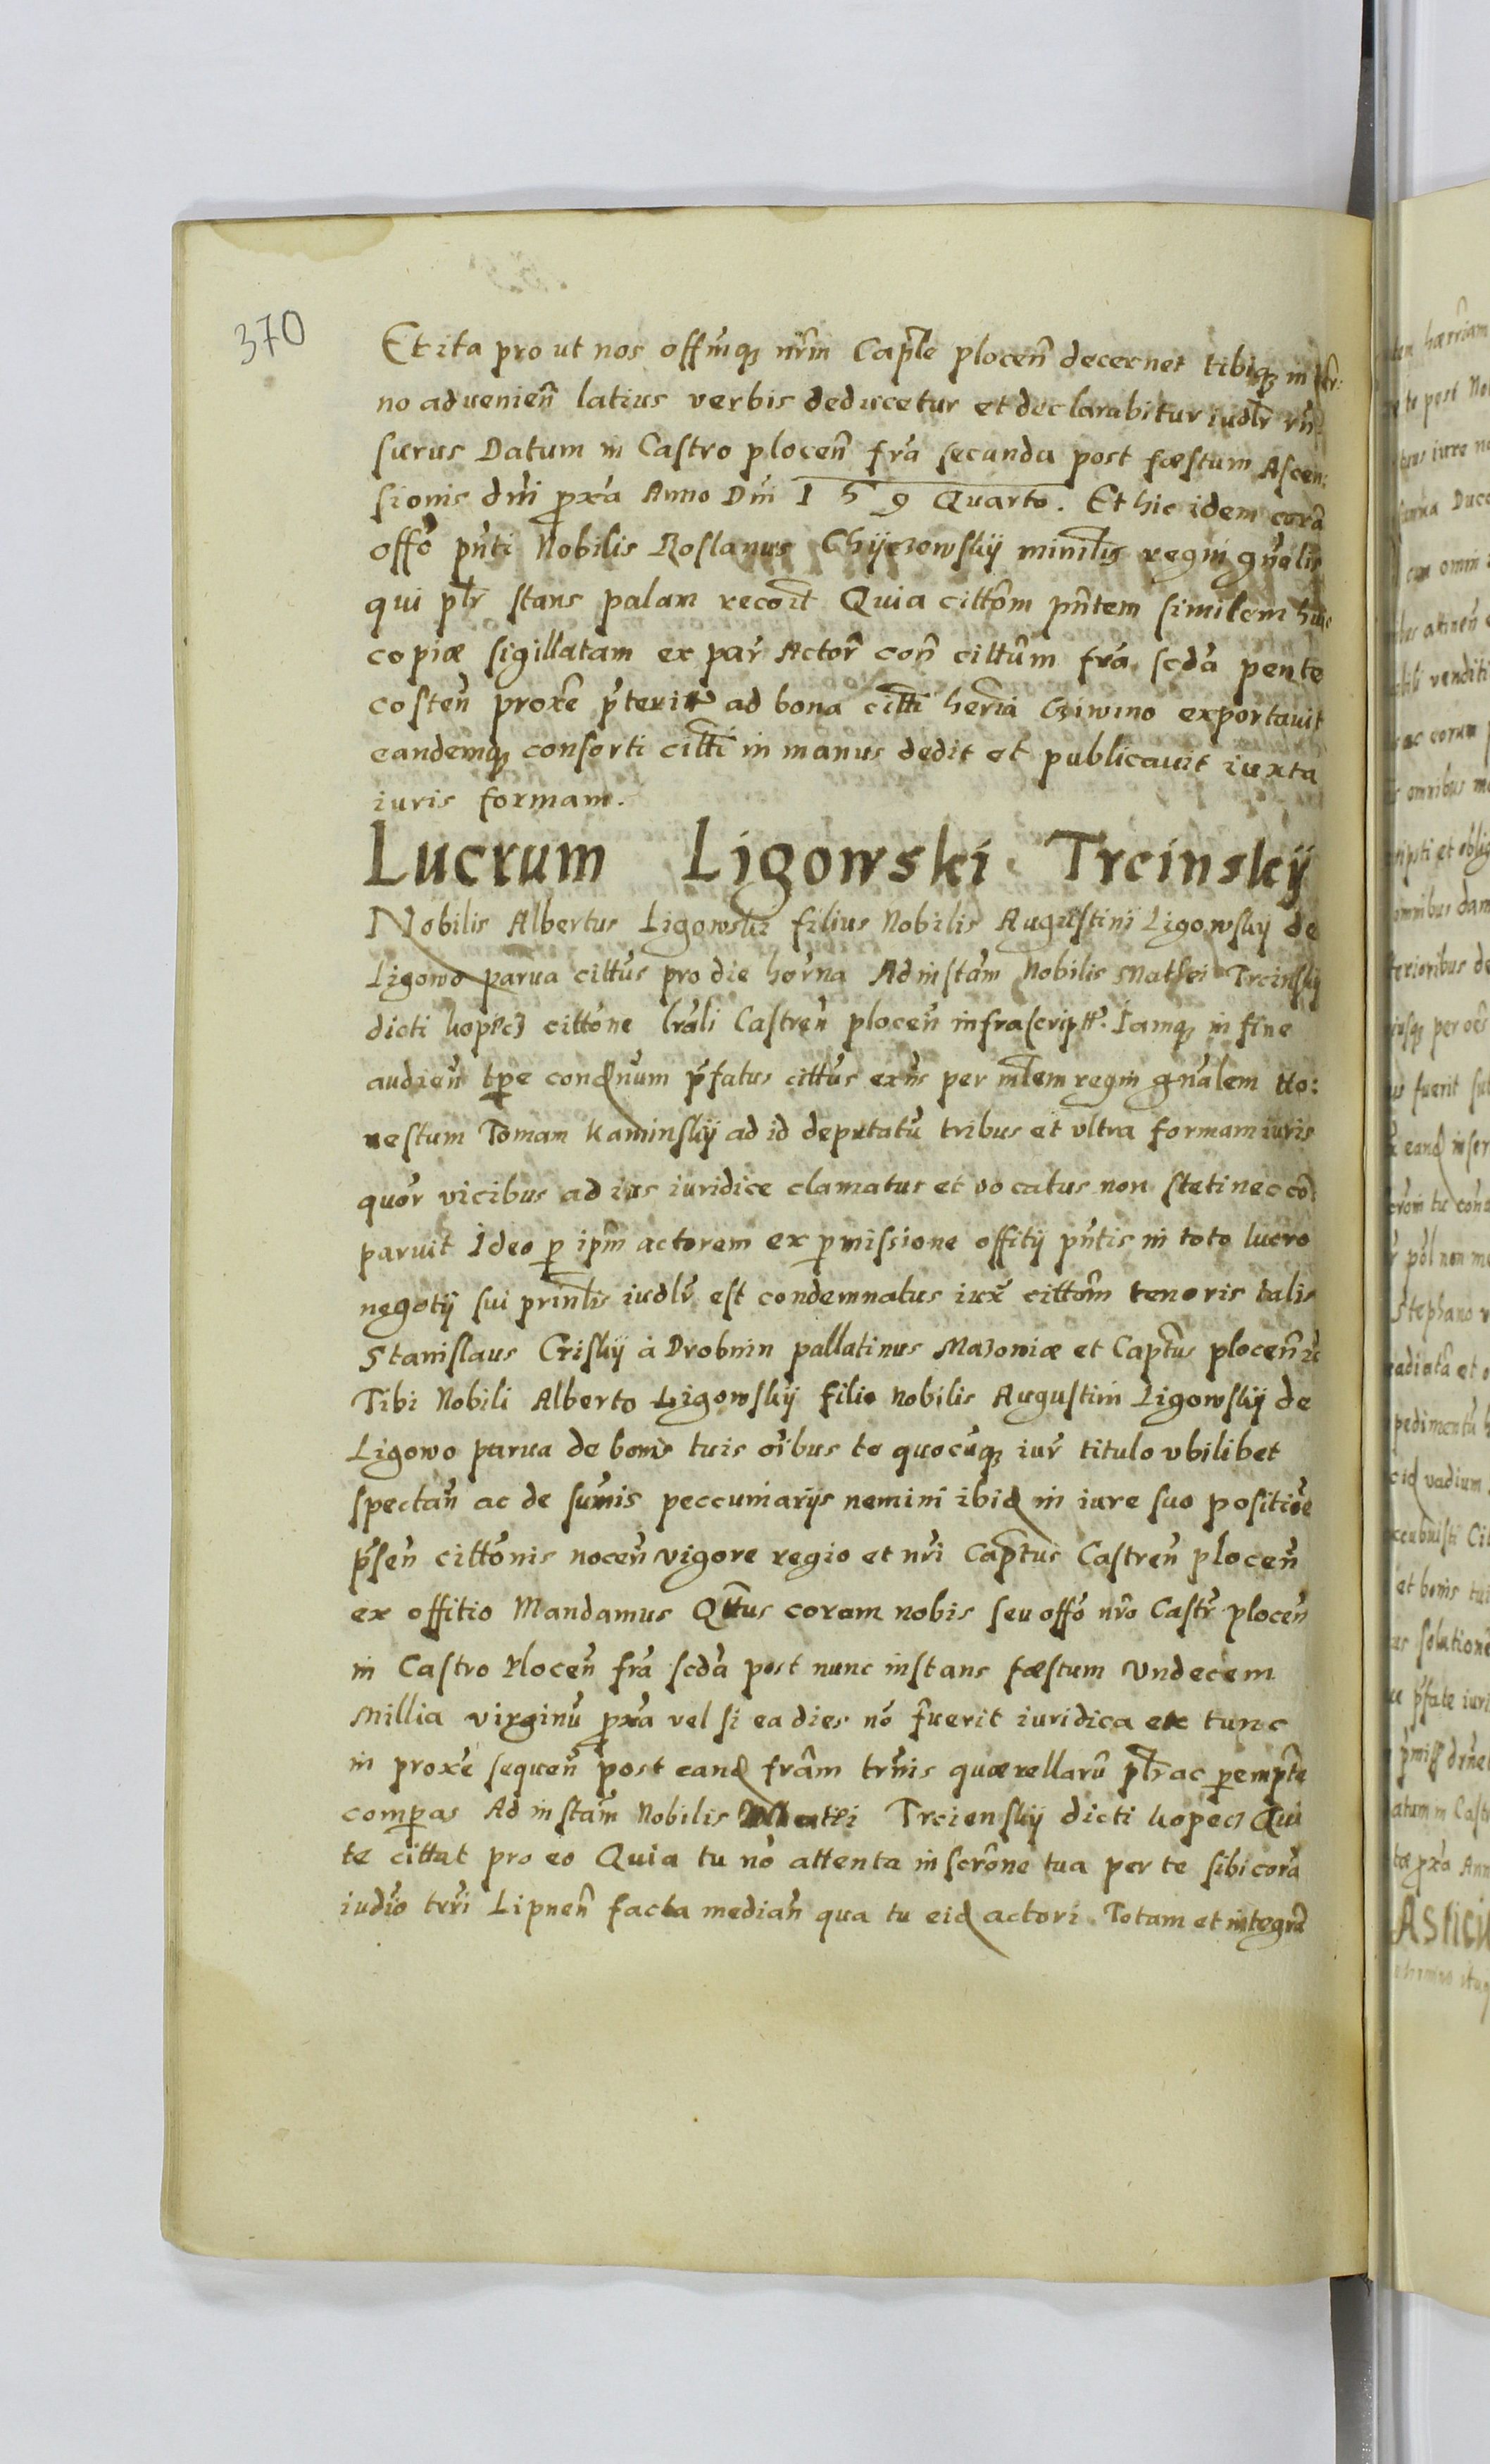 370
Et ita pro ut nos offm̃q3 nr̃m Cap̃le plocen̄ decernet tibiq3 in ter:
no aduenien̄ latius verbis deducetur et declarabitur iudlr̄ rn̄:
surus Datum in Castro plocen̄ fr̃a secunda post fæstum Ascen:
sionis dn̄i p̱xa Anno Dn̄i 1 5 9 Quarto. Et hic idem corā
offō pn̄ti Nobilis Roslanus Chyczowskij minīlis regni gn̄alis
qui pl̄r stans palam recōit Quia cittōm pn̄tem similem huic
copiæ sigillatam ex par̄ Actor̄ con̄ cittūm fr̃a scd̃a pente
costen̄ proxē p̄terit ad bona citti heria Gziwino exportauit
eandemq3 consorti citti in manus dedit et publicauit iuxta
iuris formam.
Lucrum Ligowski Trcinskij
Nobilis Albertus Ligowski filius Nobilis Augustini Ligowskij de
Ligowo parua cittūs pro die hor̄na Ad instām Nobilis Mathei Trcinskij
dicti kopec3 cittōne lr̄ali Castren̄ plocen̄ infrascriptt̄. Iamq3 in fine
audien̄ tp̱e condn̄um p̄fatus cittūs exn̄s per mlem regni gn̄alem Ho:
nestum Tomam Kaminskij ad id deputatū tribus et vltra formam iuris
quor̄ vicibus ad ius iuridice clamatus et vocatus non stetit nec cō
paruit Ideo p̱ ipm̄ actorem ex p̱missione offitij pn̄tis in toto lucro
negotij sui prinīlis iudlr̄ est condemnatus iux̄ cittōm tenoris talis
Stanislaus Criskij à Drobnin pallatinus Mazoniæ et Captūs plocen̄ zc
Tibi Nobili Alberto Ligowskij filio Nobilis Augustini Ligowskij de
Ligowo parua de bonis tuis oībus te quocūq3 iur̄ titulo vbilibet
spectan̄ ac de sum̄is peccuniarijs nemini ibid in iure suo positioē
p̄sen̄ cittōnis nocen̄ vigore regio et nr̄i Captūs Castren̄ plocen̄
ex offitio Mandamus Qtt̄us coram nobis seu offō nr̄o Castr̄ plocen̄
in Castro Plocen̄ fr̃a scd̃a post nunc instans fæstum Vndecem
Millia virginū p̱xa vel si ea dies nō fuerit iuridica ex tunc
in proxē sequen̄ post eand frām trn̄is quærellarū pl̄r ac p̱empte
comp̱as Ad instām Nobilis Mathei Trcienskij dicti kopec3 Qui
te cittat pro eo Quia tu nō attenta inscrōne tua per te sibi corā
iudīo trr̄i Lipnen̄ facta median̄ qua tu eid actori Totam et integrā